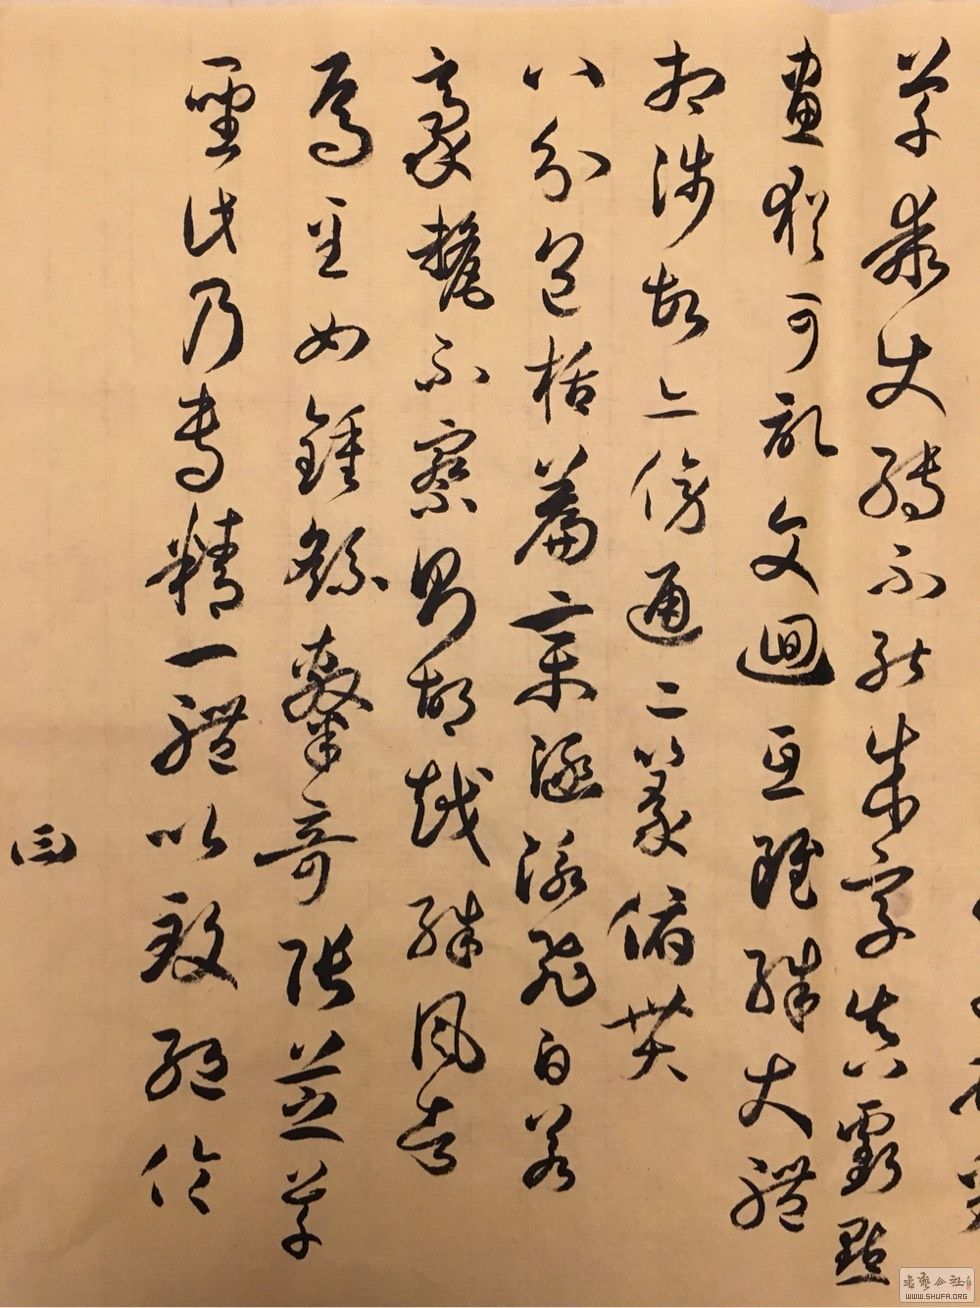 草乖使轉不能成字真虧點
畫猶可記文迴互雖殊大體
相涉故亦傍通二篆俯貫
八分包括篇章涵泳飛白若
豪釐不察則胡越殊風者
焉至如鍾繇隸奇張芝草
聖此乃專精一體以致絕倫
書藝公社
WWW.SHUFA.ORG